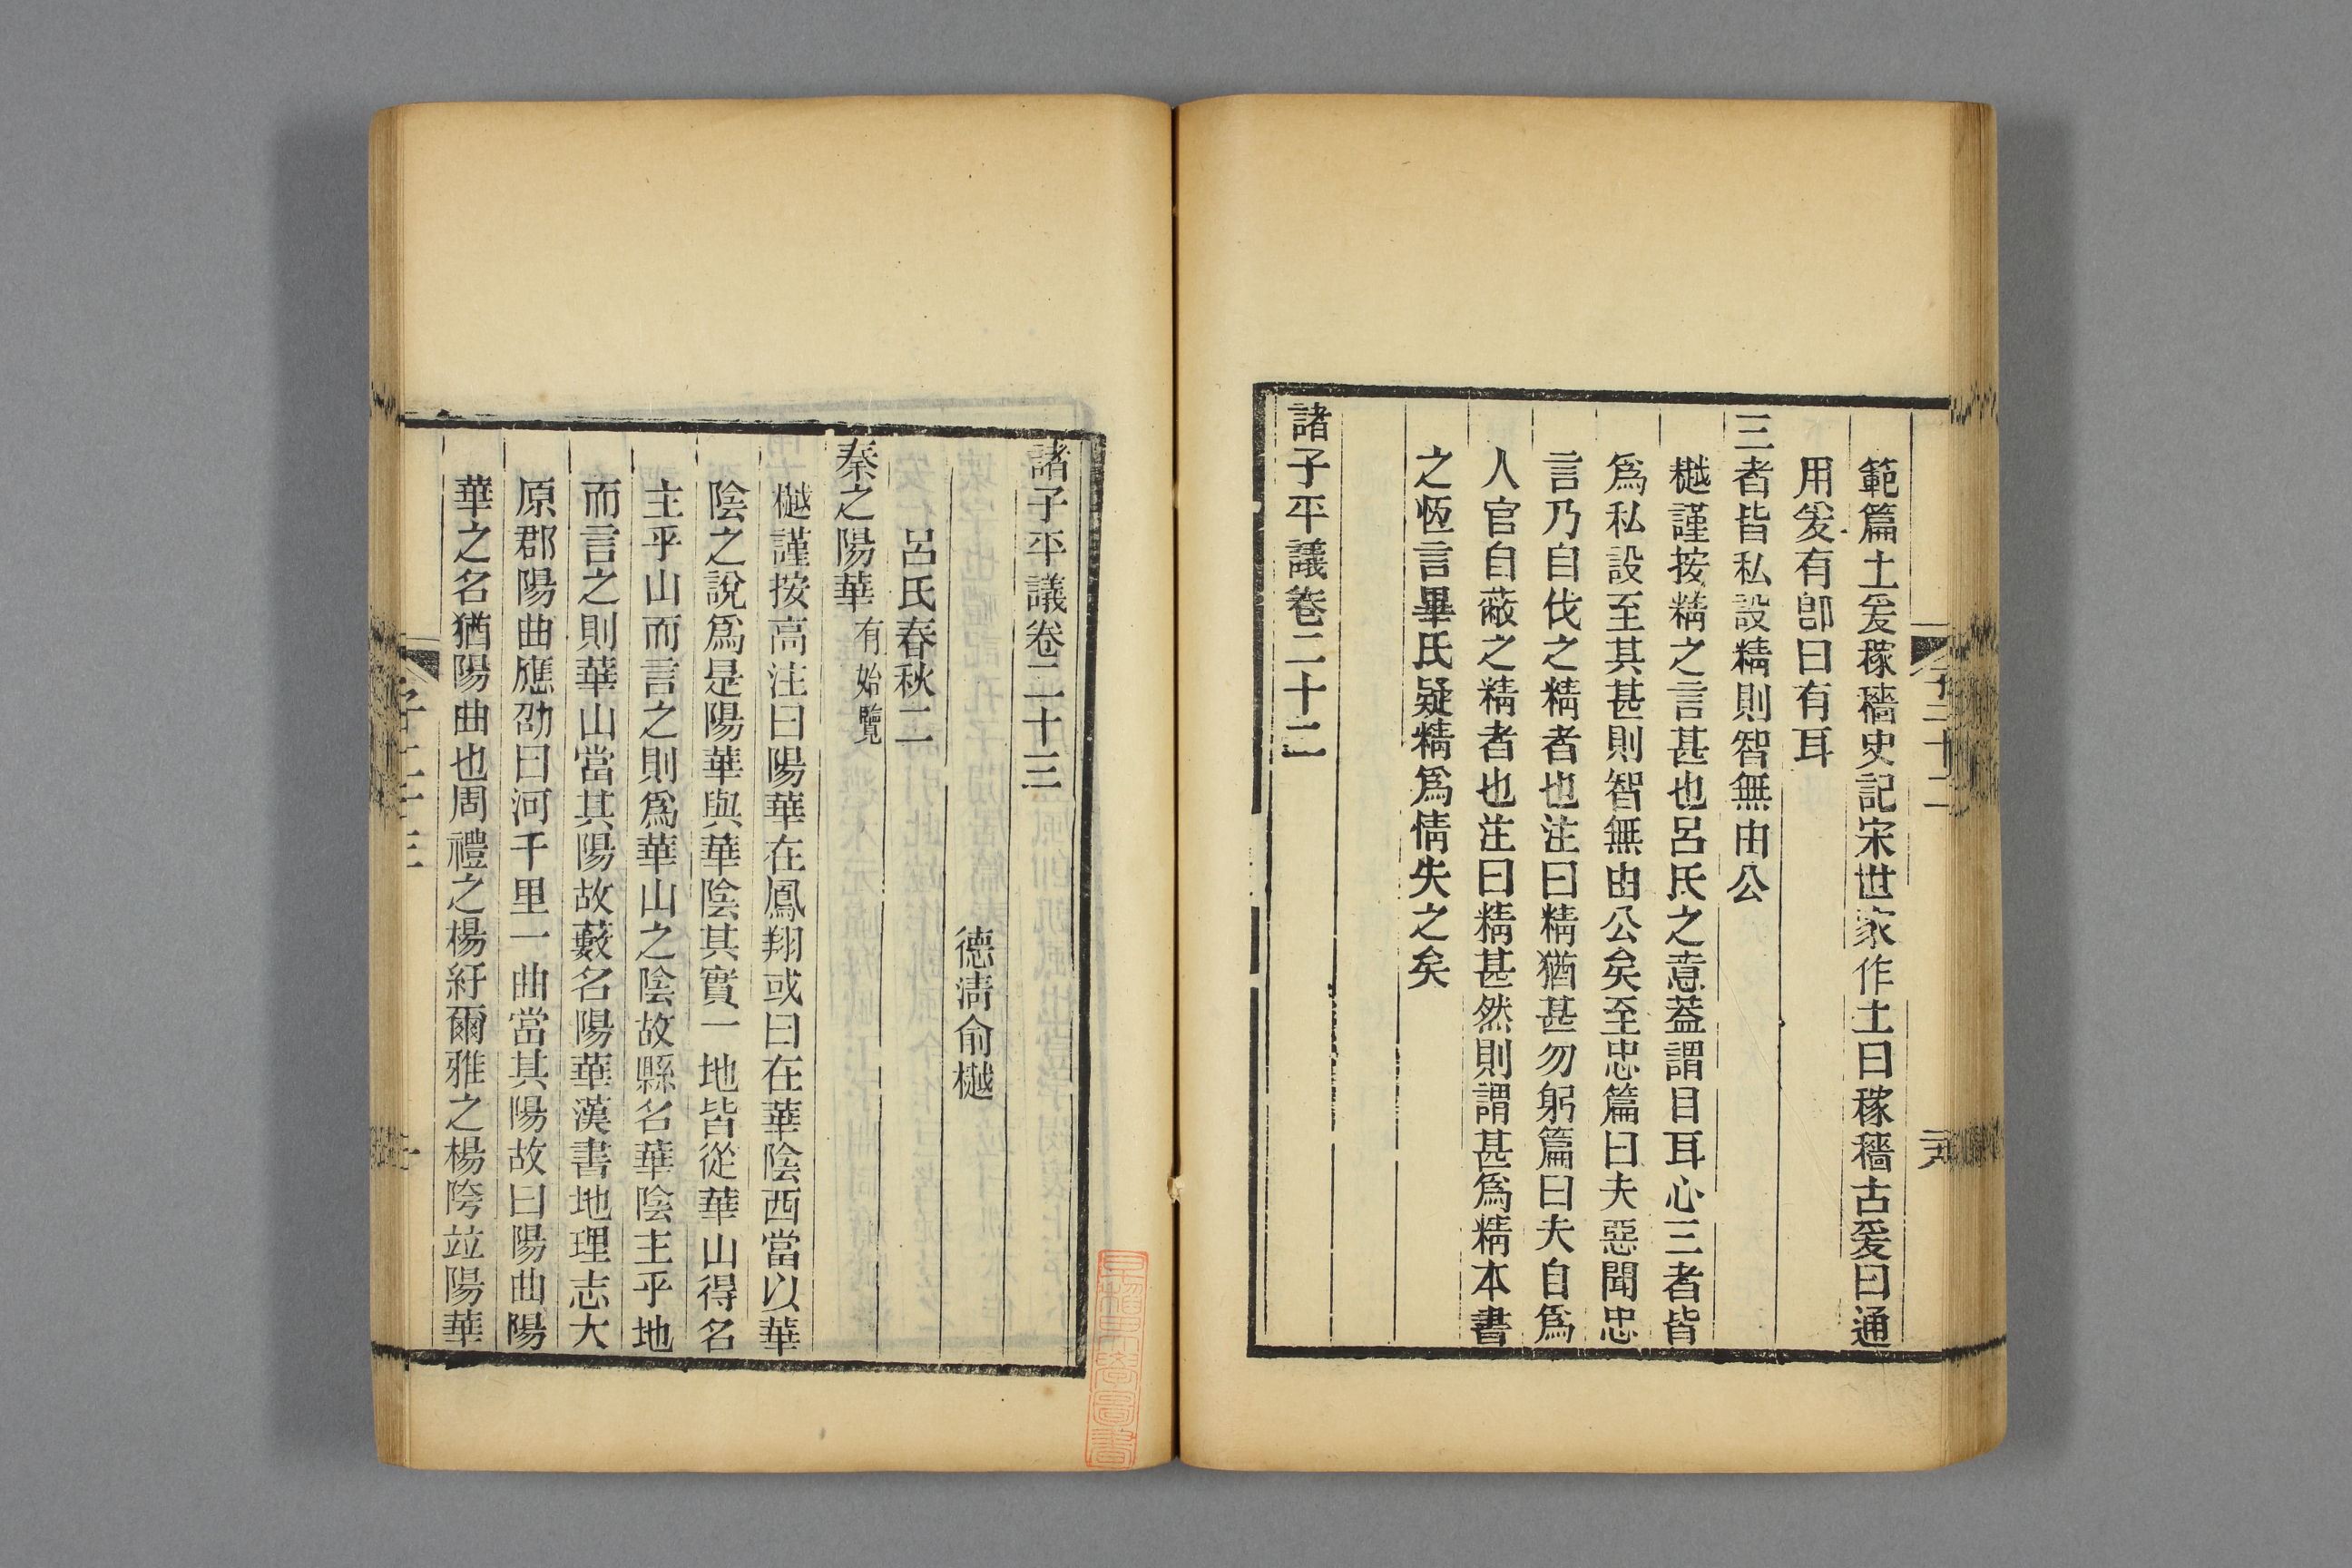 範篇土爰稼穡史記宋世家作土曰稼穡古爰曰通
用爰有卽曰有耳
三者皆私設精則智無由公
樾謹按精之言甚也呂氏之意葢謂目耳心三者皆
爲私設至其甚則智無由公矣至忠篇曰夫惡聞忠
言乃自伐之精者也注曰精猶甚勿躬篇曰夫自爲
人官自蔽之精者也注曰精甚然則謂甚爲精本書
之恆言畢氏疑精爲情失之矣
諸子平議卷二十二
諸子平議卷二十三
德淸俞樾
呂氏春秋二
秦之陽華有始覽
樾謹按高注曰陽華在鳳翔或曰在華陰西當以華
陰之說爲是陽華與華陰其實一地皆從華山得名
主乎山而言之則爲華山之陰故縣名華陰主乎地
而言之則華山當其陽故藪名陽華漢書地理志大
原郡陽曲應劭曰河千里一曲當其陽故曰陽曲陽
華之名猶陽曲也周禮之楊紆爾雅之楊陓竝陽華
子二十三